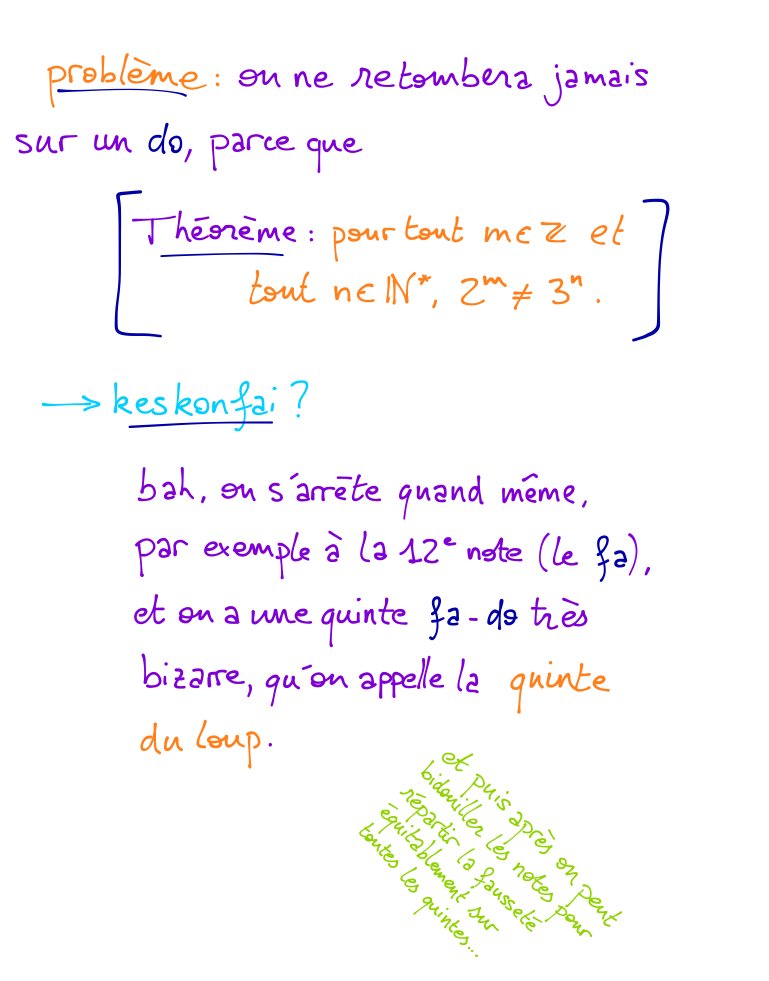 problème : on ne retombera jamais
sur un do, parce que
Théorème : pour tout m ∈ ℤ et
tout n ∈ ℕ*, 2ᵐ ≠ 3ⁿ.
→ keskonfai ?
bah, on s'arrête quand même,
par exemple à la 12ᵉ note (le fa),
et on a une quinte fa - do très
bizarre, qu'on appelle la quinte
du loup.
et puis après on peut
bidouiller les notes pour
répartir la fausseté
équitablement sur
toutes les quintes...